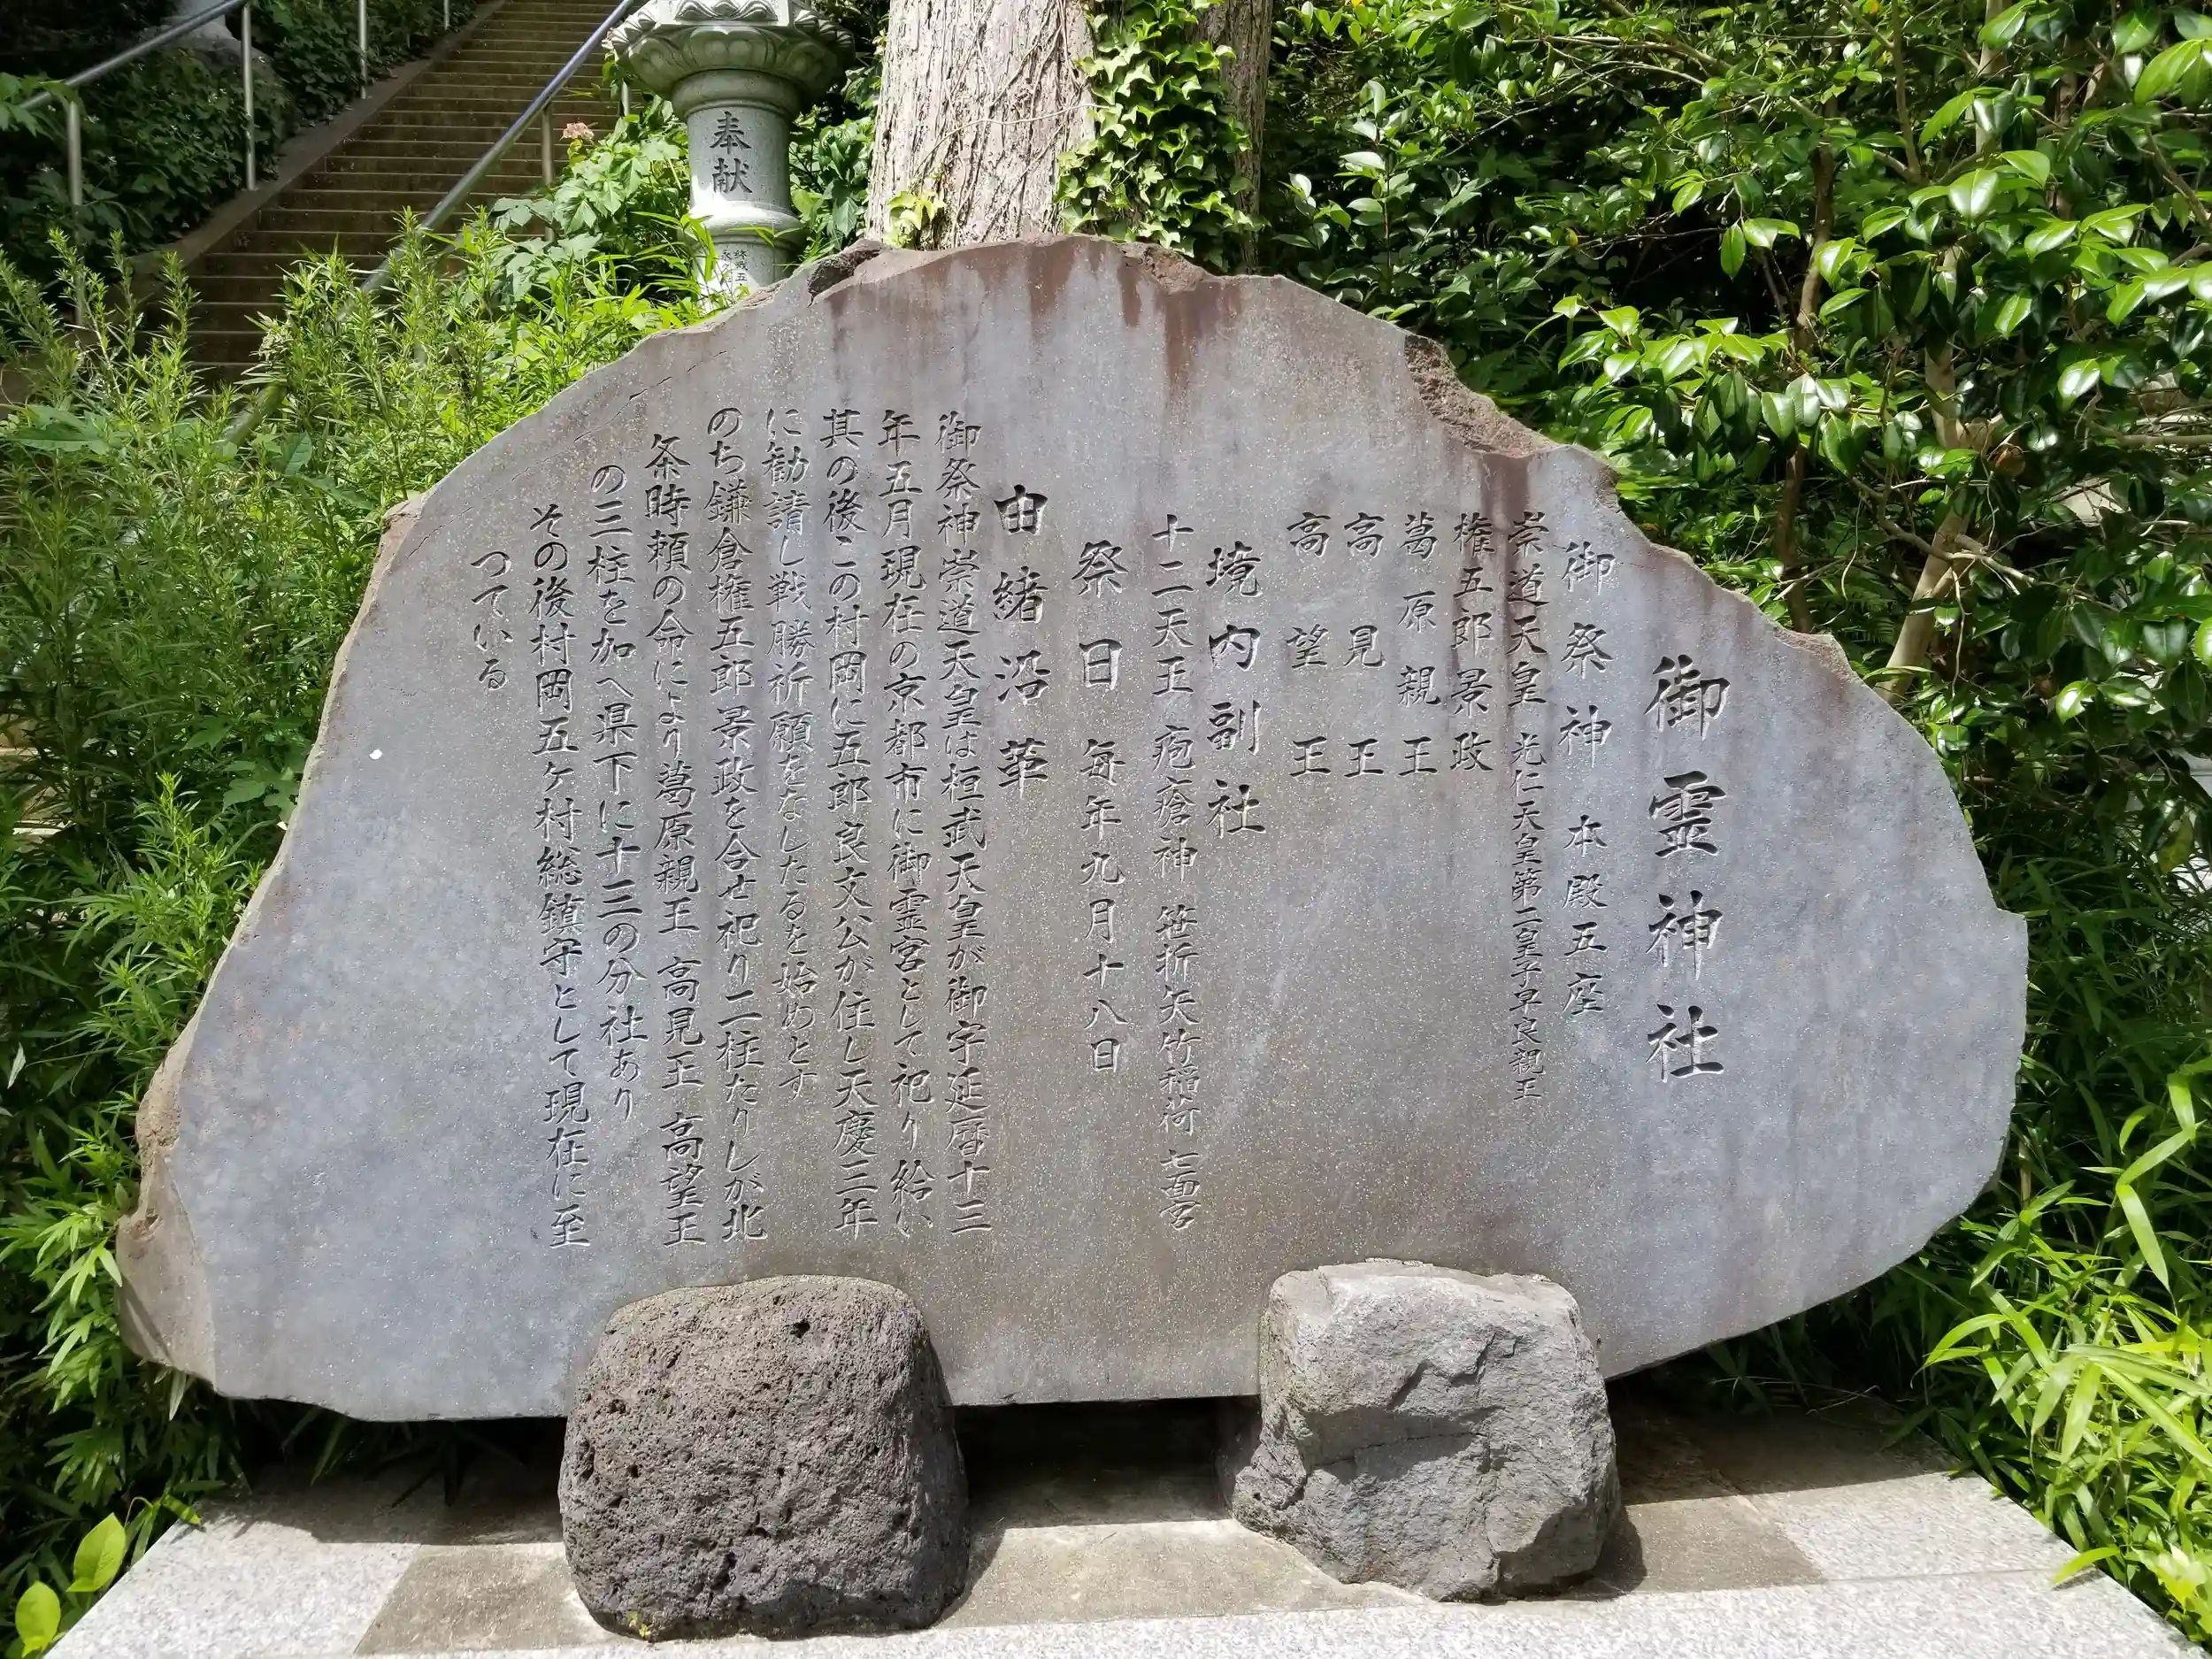 御霊神社
御祭神 本殿五座
崇道天皇 光仁天皇第二皇子早良親王
権五郎景政
葛原親王
高見王
高望王
境内副社
十二天王 疱瘡神 笹折矢竹稲荷 七面宮
祭日 毎年九月十八日
由緒沿革
御祭神崇道天皇は桓武天皇が御宇延暦十三
年五月現在の京都市に御霊宮として祀り給い
其の後この村岡に五郎良文公が住し天慶三年
に勧請し戦勝祈願をなしたるを始めとす
のち鎌倉権五郎景政を合せ祀り二柱たりしが北
条時頼の命により葛原親王 高見王 高望王
の三柱を加へ県下に十三の分社あり
その後村岡五ケ村総鎮守として現在に至
つている
奉献